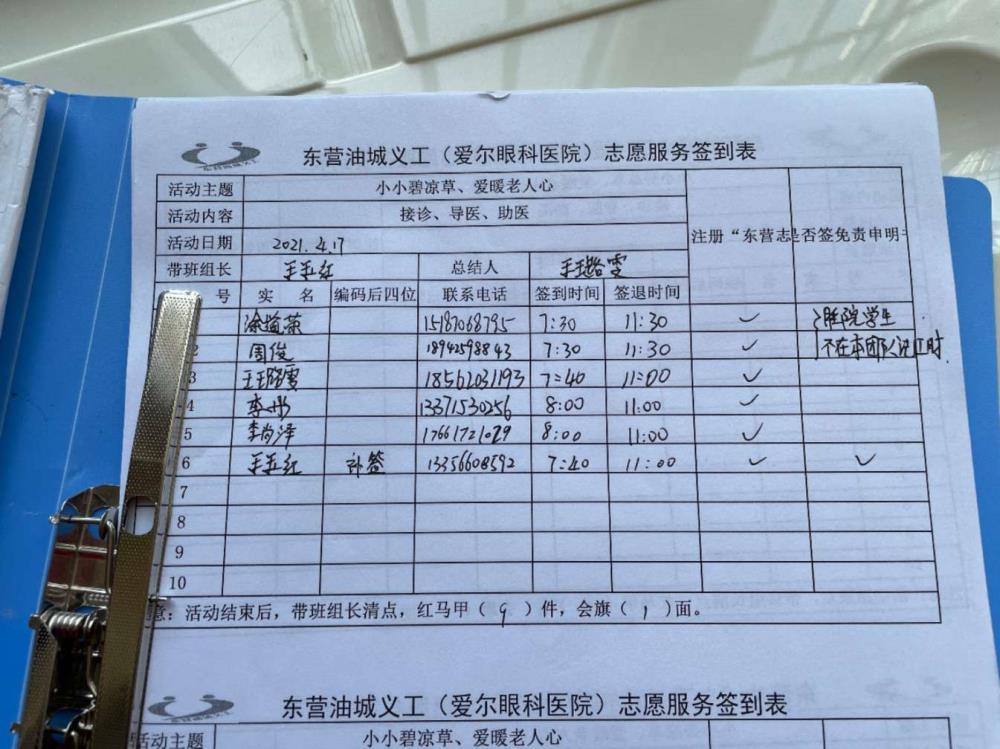 东营油城义工（爱尔眼科医院）志愿服务签到表
活动主题 小小碧凉草、爱暖老人心
活动内容 接诊、导医、助医
活动日期 2021.4.17 注册“东营志 是否签免责申明
带班组长 王玉红 总结人 王璐雯
号 实 名 编码后四位 联系电话 签到时间 签退时间
涂道荣 15187068795 7:30 11:30 ✓ 胜院学生
2 周俊 18942598843 7:30 11:30 ✓ 不在本团队记工时
3 王璐雯 18562031193 7:40 11:00 ✓
4 李彬 13371530256 8:00 11:00 ✓
5 李尚泽 17661721029 8:00 11:00 ✓
6 王玉红 补签 13356608592 7:40 11:00 ✓ ✓
7
8
9
10
意：活动结束后，带班组长清点，红马甲（9）件，会旗（1）面。
东营油城义工（爱尔眼科医院）志愿服务签到表
活动主题 小小碧凉草、爱暖老人心